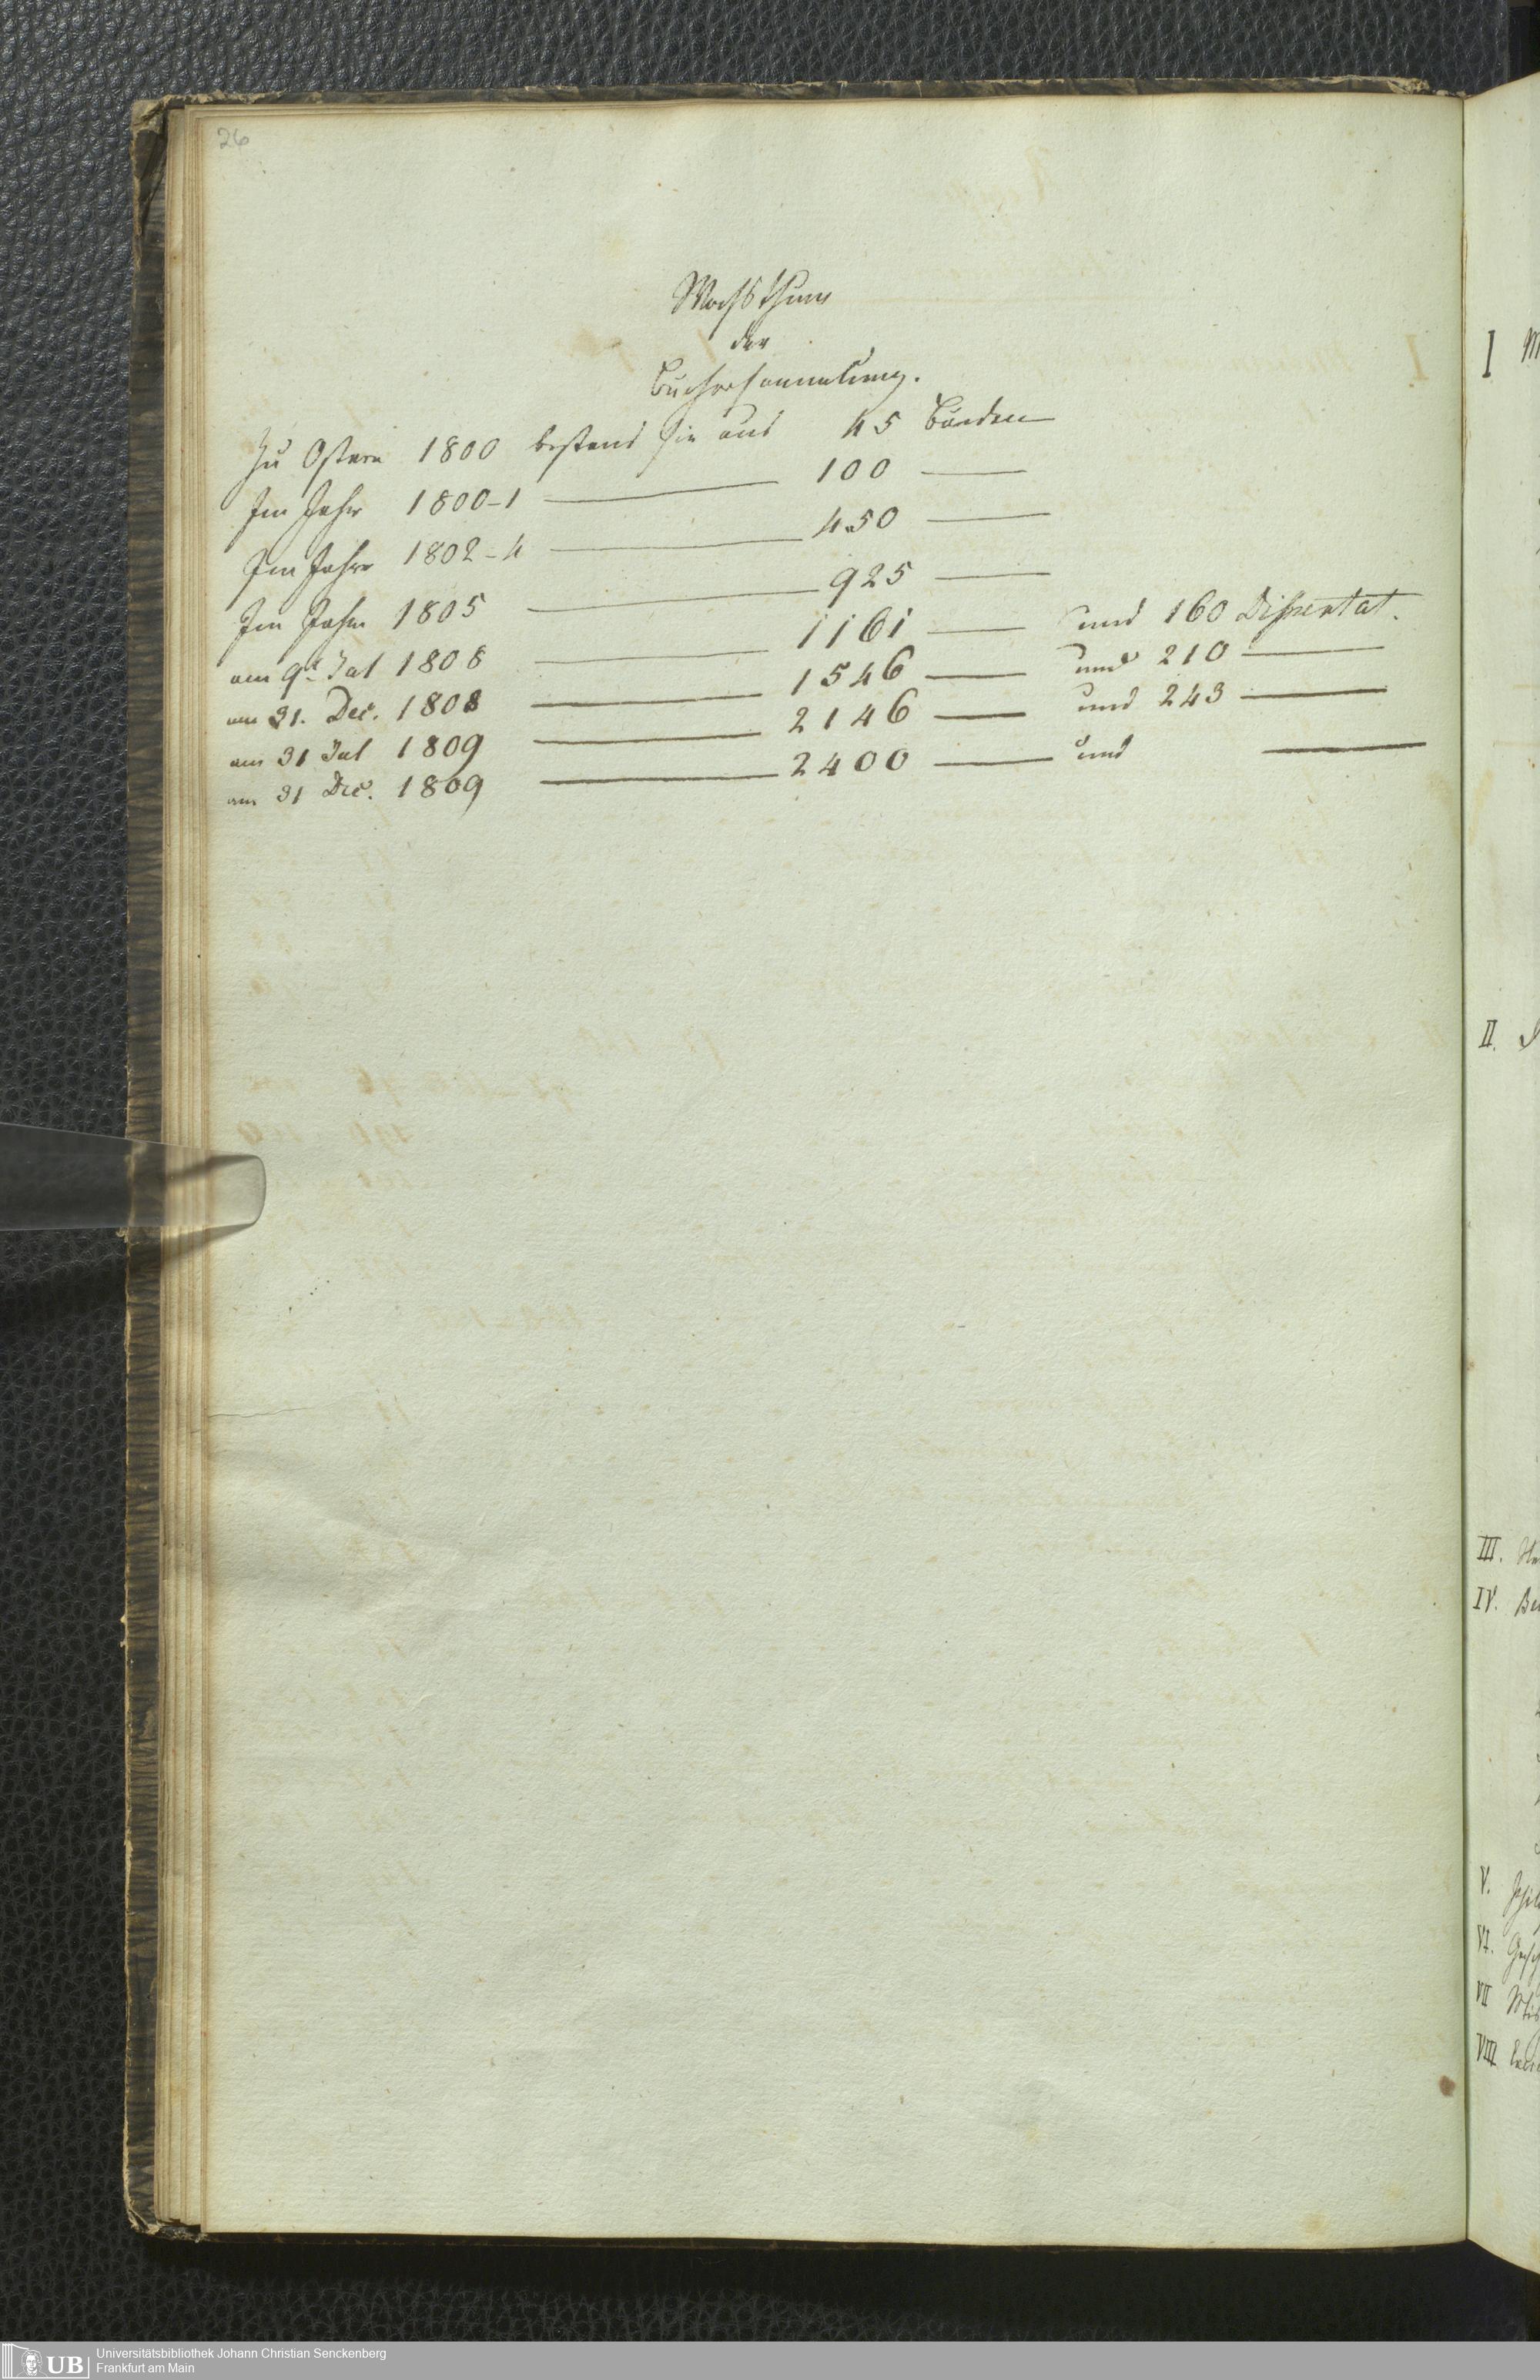 26
Wachsthum
der
Büchersammlung.
Zu Ostern 1800 bestand sie aus 45 Bänden
Im Jahr 1800-1 — 100 —
Im Jahre 1802-4 — 450 —
Im Jahre 1805 — 925 —
am 9t Jul 1808 — 1161 — und 160 Dissertat.
am 31. Dec. 1808 — 1546 — und 210 —
am 31 Jul 1809 — 2146 — und 243 —
am 31 Dec. 1809 — 2400 — und —
I
II.
III.
IV.
V.
VI.
VII
VIII
UB
Universitätsbibliothek Johann Christian Senckenberg
Frankfurt am Main